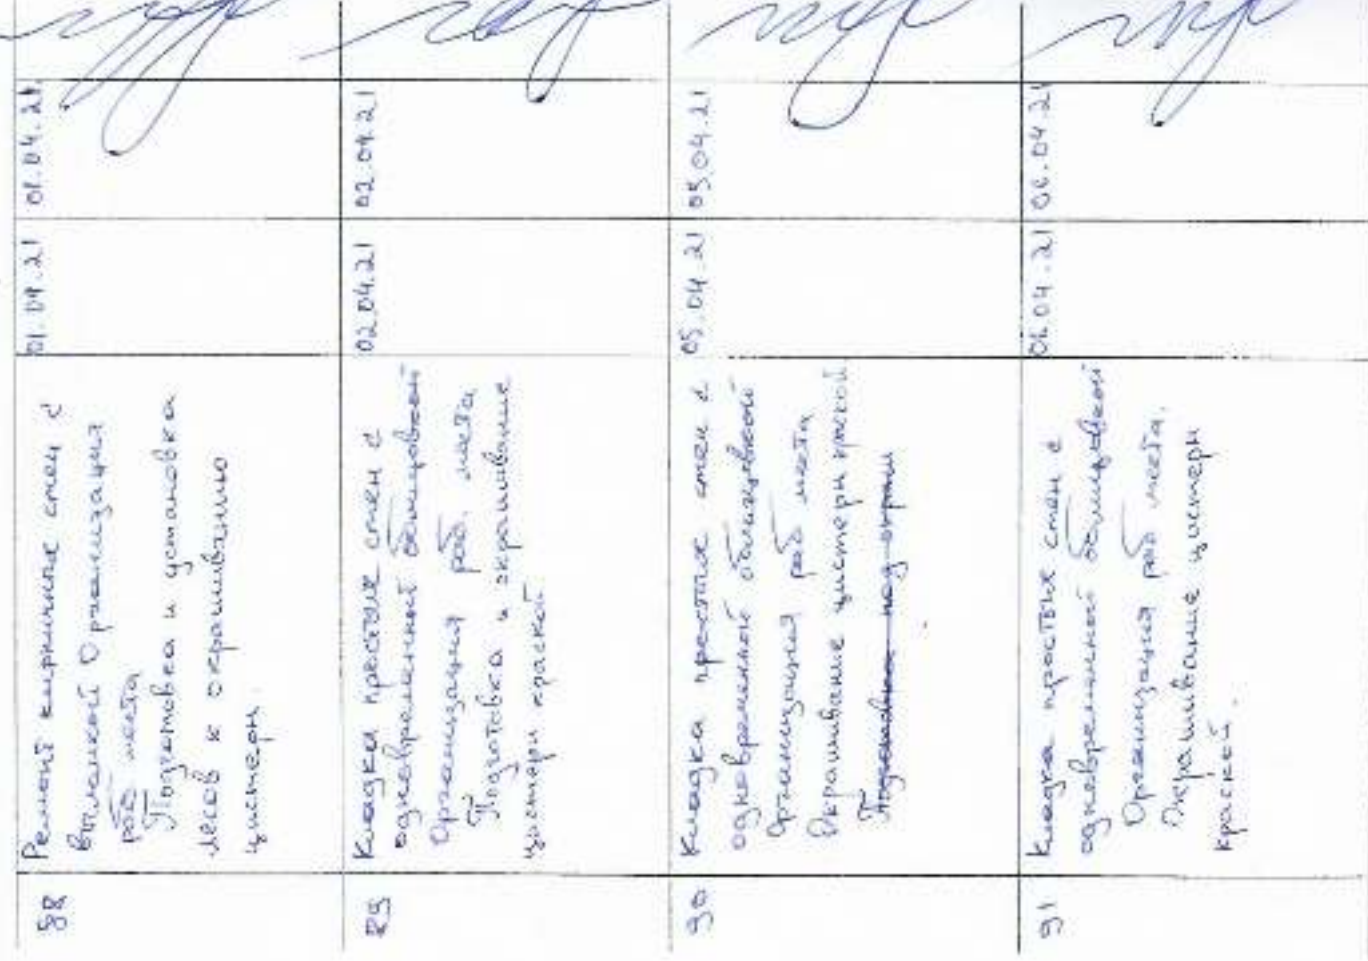 88
Ремонт кирпичных стен с
выломкой Организация
раб места
Подготовка и установка
лесов к окрашиванию
цистерн.
01.04.21
01.04.21
89
Кладка простых стен с
одновременной облицовкой
Организация раб. места
Подготовка и окрашивание
цистерн краской
02.04.21
02.04.21
90
Кладка простых стен с
одновременной облицовкой
Организация раб места
Окрашивание цистерн краской
Подготовка под окраш
05.04.21
05.04.21
91
Кладка простых стен с
одновременной облицовкой
Организация раб места.
Окрашивание цистерн
краской.
06.04.21
06.04.21